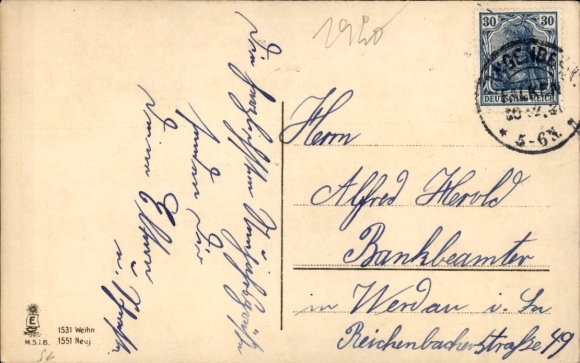 1920
30 30
DEUTSCHES REICH
5-6N.
Die herzlichsten Neujahrsgrüße
senden Dir
Deine Eltern
u.
Herrn
Alfred Herold
Bankbeamter
in Werdau i. Sa
Reichenbacherstraße 49
E
M.S.i.B.
1531 Weihn
1551 Neuj.